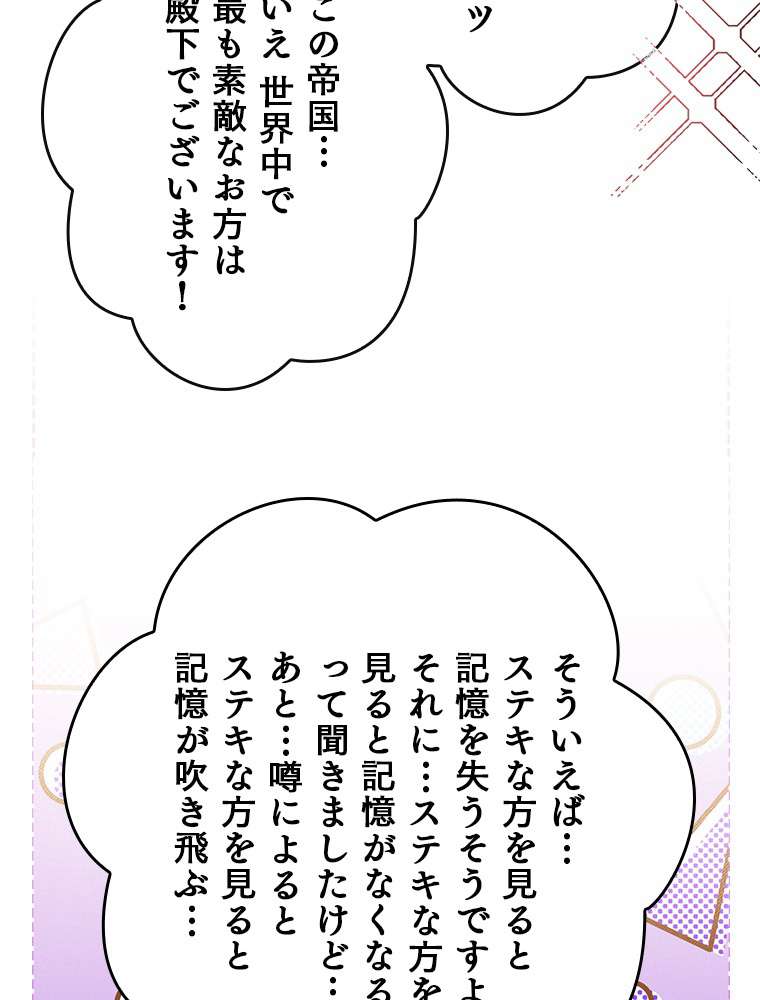 ッ
この帝国…
いえ 世界中で
最も素敵なお方は
殿下でございます！
そういえば…
ステキな方を見ると
記憶を失うそうですよ
それに…ステキな方を
見ると記憶がなくなる
って聞きましたけど…
あと…噂によると
ステキな方を見ると
記憶が吹き飛ぶ…